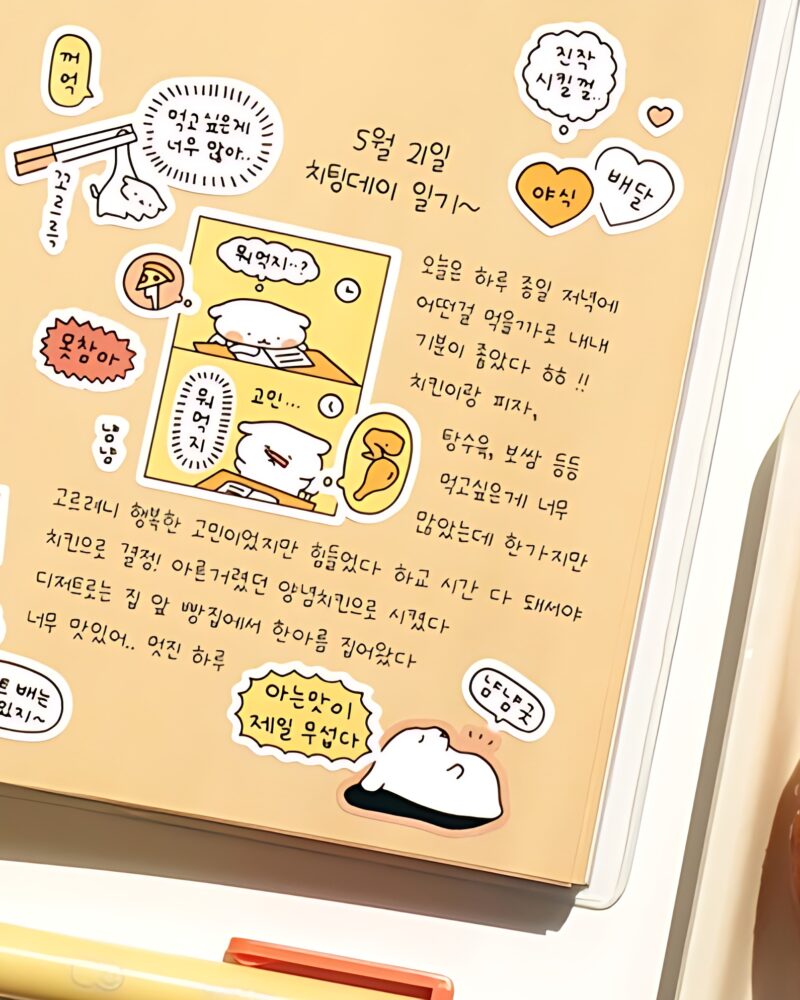 꺼
억
먹고싶은게
너무 많아..
꼬르륵
진작
시킬껄..
야식
배달
5월 21일
치팅데이 일기~
뭐먹지..?
못참아
뭐
먹
지
고민...
냠
냠
오늘은 하루 종일 저녁에
어떤걸 먹을까로 내내
기분이 좋았다 ㅎㅎ !!
치킨이랑 피자,
탕수육, 보쌈 등등
먹고싶은게 너무
많았는데 한가지만
고르려니 행복한 고민이었지만 힘들었다 하교 시간 다 돼서야
치킨으로 결정! 아른거렸던 양념치킨으로 시켰다
디저트로는 집 앞 빵집에서 한아름 집어왔다
너무 맛있어.. 멋진 하루
트 배는
있지~
아는맛이
제일 무섭다
냠냠굿